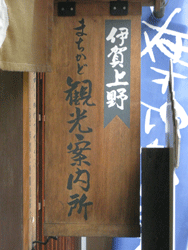 伊賀上野
まちかど観光案内所